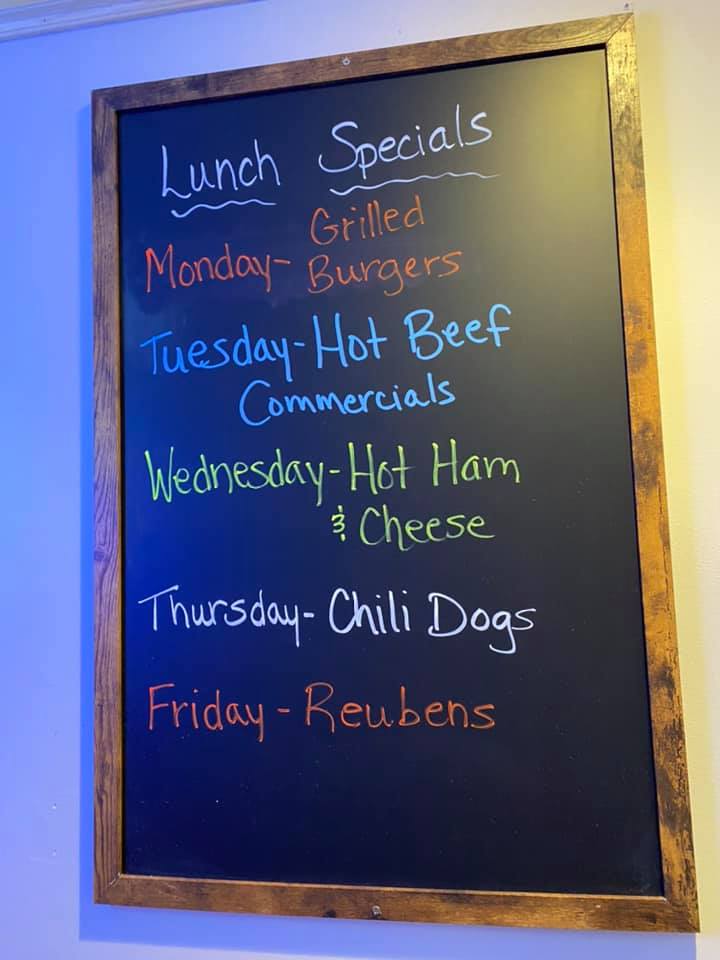 Lunch Specials
Grilled
Monday- Burgers
Tuesday-Hot Beef
Commercials
Wednesday-Hot Ham
& Cheese
Thursday- Chili Dogs
Friday - Reubens